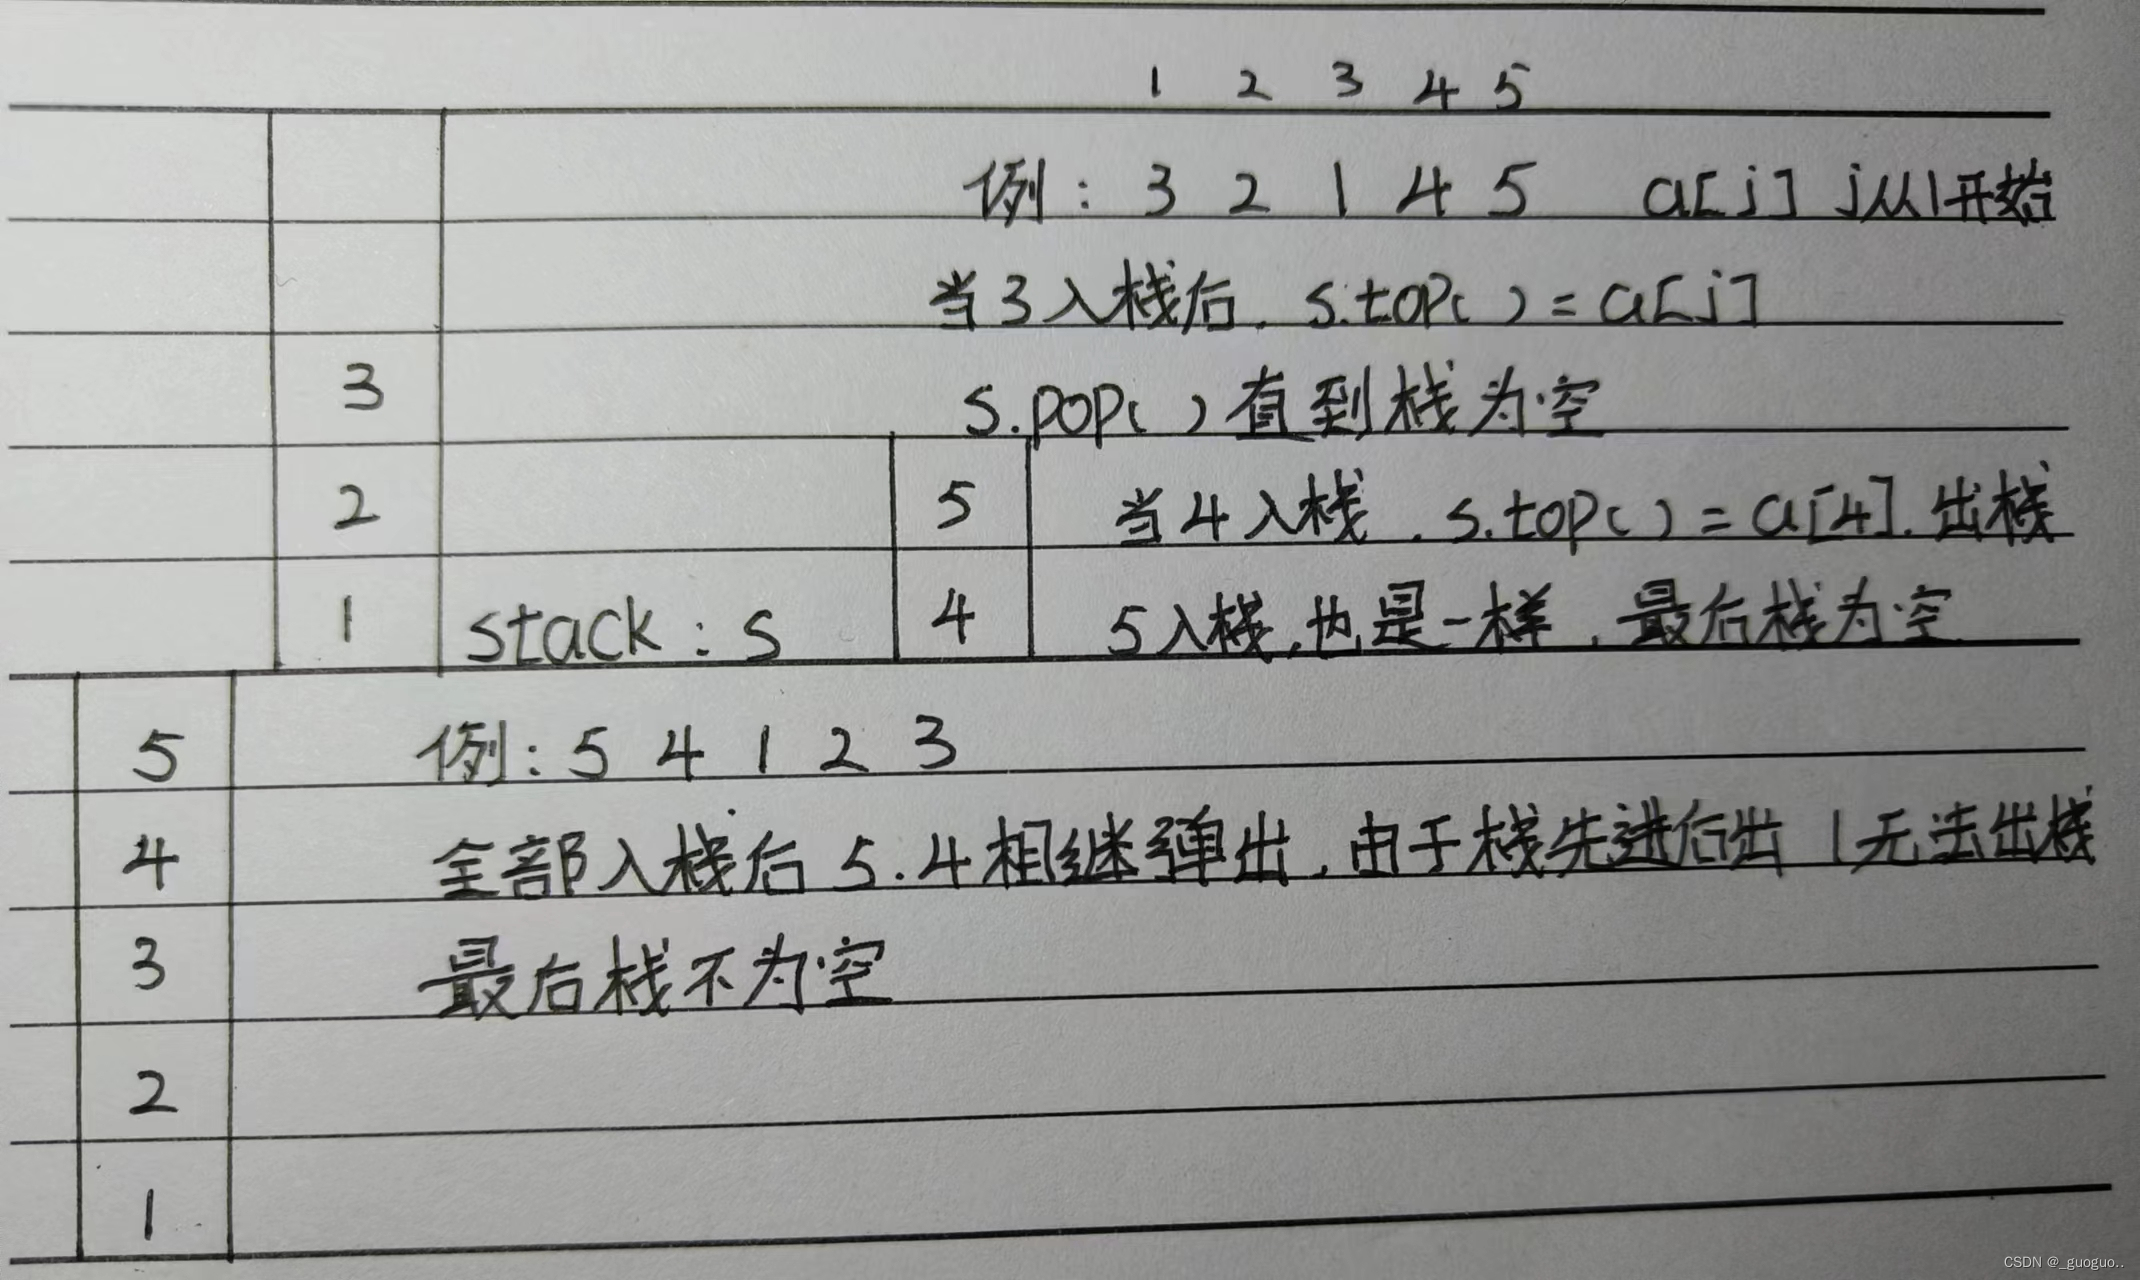 1 2 3 4 5
例: 3 2 1 4 5 a[j] j从1开始
当3入栈后. s.top( ) = a[j]
3 s.pop( ) 直到栈为空
2 5 当4入栈. s.top( ) = a[4]. 出栈
1 stack: s 4 5入栈,也是一样,最后栈为空
5 例: 5 4 1 2 3
4 全部入栈后 5.4相继弹出,由于栈先进后出 1无法出栈
3 最后栈不为空
2
1
CSDN @_guoguo..